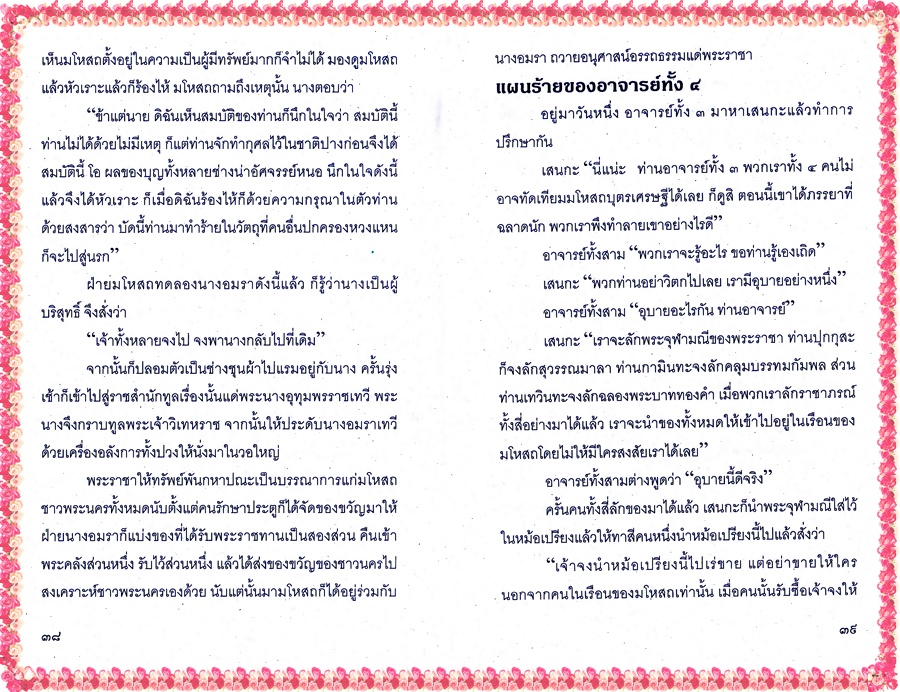 เห็นมโหสถตั้งอยู่ในความเป็นผู้มีทรัพย์มากก็จำไม่ได้ มองดูมโหสถ
แล้วหัวเราะแล้วก็ร้องไห้ มโหสถถามถึงเหตุนั้น นางตอบว่า
“ข้าแต่นาย ดิฉันเห็นสมบัติของท่านก็นึกในใจว่า สมบัตินี้
ท่านไม่ได้ด้วยไม่มีเหตุ ก็แต่ท่านจักทำกุศลไว้ในชาติปางก่อนจึงได้
สมบัตินี้ โอ ผลของบุญทั้งหลายช่างน่าอัศจรรย์หนอ นึกในใจดังนี้
แล้วจึงได้หัวเราะ ก็เมื่อดิฉันร้องไห้ก็ด้วยความกรุณาในตัวท่าน
ด้วยสงสารว่า บัดนี้ท่านมาทำร้ายในวัตถุที่คนอื่นปกครองหวงแหน
ก็จะไปสู่นรก”
ฝ่ายมโหสถทดลองนางอมราดังนี้แล้ว ก็รู้ว่านางเป็นผู้
บริสุทธิ์ จึงสั่งว่า
“เจ้าทั้งหลายจงไป จงพานางกลับไปที่เดิม”
จากนั้นก็ปลอมตัวเป็นช่างชุนผ้าไปแรมอยู่กับนาง ครั้นรุ่ง
เช้าก็เข้าไปสู่ราชสำนักทูลเรื่องนั้นแด่พระนางอุทุมพรราชเทวี พระ
นางจึงกราบทูลพระเจ้าวิเทหราช จากนั้นให้ประดับนางอมราเทวี
ด้วยเครื่องอลังการทั้งปวงให้นั่งมาในวอใหญ่
พระราชาให้ทรัพย์พันกหาปณะเป็นบรรณาการแก่มโหสถ
ชาวพระนครทั้งหมดนับตั้งแต่คนรักษาประตูก็ได้จัดของขวัญมาให้
ฝ่ายนางอมราก็แบ่งของที่ได้รับพระราชทานเป็นสองส่วน คืนเข้า
พระคลังส่วนหนึ่ง รับไว้ส่วนหนึ่ง แล้วได้ส่งของขวัญของชาวนครไป
สงเคราะห์ชาวพระนครเองด้วย นับแต่นั้นมามโหสถก็ได้อยู่ร่วมกับ
๓๘
นางอมรา ถวายอนุศาสน์อรรถธรรมแด่พระราชา
แผนร้ายของอาจารย์ทั้ง ๔
อยู่มาวันหนึ่ง อาจารย์ทั้ง ๓ มาหาเสนกะแล้วทำการ
ปรึกษากัน
เสนกะ “นี่แน่ะ ท่านอาจารย์ทั้ง ๓ พวกเราทั้ง ๔ คนไม่
อาจทัดเทียมมโหสถบุตรเศรษฐีได้เลย ก็ดูสิ ตอนนี้เขาได้ภรรยาที่
ฉลาดนัก พวกเราพึงทำลายเขาอย่างไรดี”
อาจารย์ทั้งสาม “พวกเราจะรู้อะไร ขอท่านรู้เองเถิด”
เสนกะ “พวกท่านอย่าวิตกไปเลย เรามีอุบายอย่างหนึ่ง”
อาจารย์ทั้งสาม “อุบายอะไรกัน ท่านอาจารย์”
เสนกะ “เราจะลักพระจุฬามณีของพระราชา ท่านปุกกุสะ
ก็จงลักสุวรรณมาลา ท่านกามินทะจงลักคลุมบรรทมกัมพล ส่วน
ท่านเทวินทะจงลักฉลองพระบาททองคำ เมื่อพวกเราลักราชาภรณ์
ทั้งสี่อย่างมาได้แล้ว เราจะนำของทั้งหมดให้เข้าไปอยู่ในเรือนของ
มโหสถโดยไม่ให้มีใครสงสัยเราได้เลย”
อาจารย์ทั้งสามต่างพูดว่า “อุบายนี้ดีจริง”
ครั้นคนทั้งสี่ลักของมาได้แล้ว เสนกะก็นำพระจุฬามณีใส่ไว้
ในหม้อเปรียงแล้วให้ทาสีคนหนึ่งนำหม้อเปรียงนี้ไปแล้วสั่งว่า
“เจ้าจงนำหม้อเปรียงนี้ไปเร่ขาย แต่อย่าขายให้ใคร
นอกจากคนในเรือนของมโหสถเท่านั้น เมื่อคนนั้นรับซื้อเจ้าจงให้
๓๙